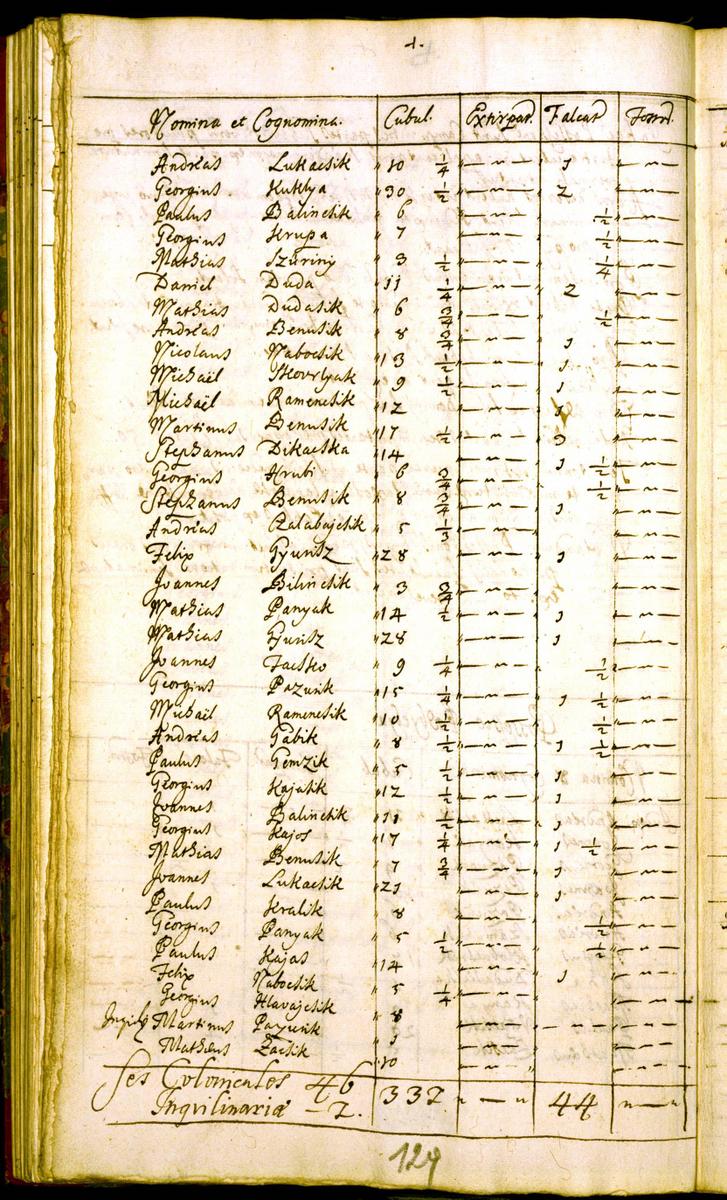 1.
Nomina et Cognomina. Cubul. Extirpat. Falcat Foeni.
Andreas Lukacsik " 10 1/4 " — " — 1 " — " —
Georgius Kuklya " 30 1/2 " — " — 2 " — " —
Paulus Balinclik " 6 " — " — 1/2 " — " —
Georgius Krupa " 7 " — " — 1/2 " — " —
Mathias Szuriny " 3 1/2 " — " — 1/4 " — " —
Daniel Duda " 11 1/4 " — " — 2 " — " —
Mathias Dudasik " 6 3/4 " — " — 1/2 " — " —
Andreas Benusik " 8 3/4 " — " — 1 " — " —
Nicolaus Nabocsik " 13 1/2 " — " — 1 " — " —
Michaël " 9 1/2 " — " — 1 " — " —
Michaël Ramencsik " 12 " — " — 1 " — " —
Martinus Benusik " 17 1/2 " — " — " — " —
Stephanus Dikacska " 14 " — " — 1 1/2 " — " —
Georgius Hrubi " 6 3/4 " — " — 1/2 " — " —
Stephanus Benusik " 8 3/4 " — " — 1 " — " —
Andreas " 5 1/3 " — " — " — " —
Felix Gyurisz " 28 " — " — 1 " — " —
Joannes Bilinclik " 3 3/4 " — " — " — " —
Mathias Panyak " 14 1/2 " — " — 1 " — " —
Mathias Gyurisz " 28 " — " — 1 " — " —
Joannes " 9 1/4 " — " — 1/2 " — " —
Georgius Pazurik " 15 1/4 " — " — 1 1/2 " — " —
Michaël Ramencsik " 10 1/2 " — " — 1/2 " — " —
Andreas Gabik " 8 1/2 " — " — 1 1/2 " — " —
Paulus Gemzik " 5 1/2 " — " — 1 " — " —
Georgius Kajasik " 12 1/2 " — " — 1 " — " —
Joannes Balinclik " 11 1/2 " — " — 1 " — " —
Georgius Kajos " 17 " — " — 1 1/2 " — " —
Mathias Benusik " 7 3/4 " — " — 1 " — " —
Joannes Lukacsik " 21 " — " — 1 " — " —
Paulus Kralik " 8 " — " — 1/2 " — " —
Georgius Panyak " 5 1/2 " — " — 1/2 " — " —
Paulus Kajas " 14 " — " — 1 " — " —
Felix Nabocsik " 5 1/4 " — " — " — " —
Georgius Hlavajcsik " 8 " — " — " — " —
Martinus Pazurik " 1 " — " — " — " —
Matheus Zacsik " 10 " — " — " — " —
Ses Colonicales 46
Inquilinaria — 7. 337 " — " 44 " — "
124